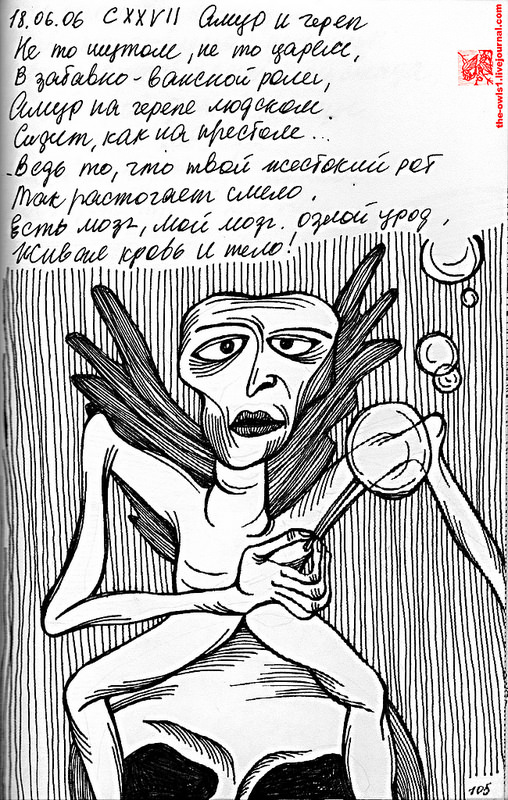 18.06.06 CXXVII Амур и череп
Не то шутом, не то царем,
В забавно-важной роли,
Амур на черепе людском
Сидит, как на престоле...
Ведь то, что твой жестокий рот
Так расточает смело.
Есть мозг, мой мозг. о злой урод,
Живая кровь и тело!
the-owls1.livejournal.com
105